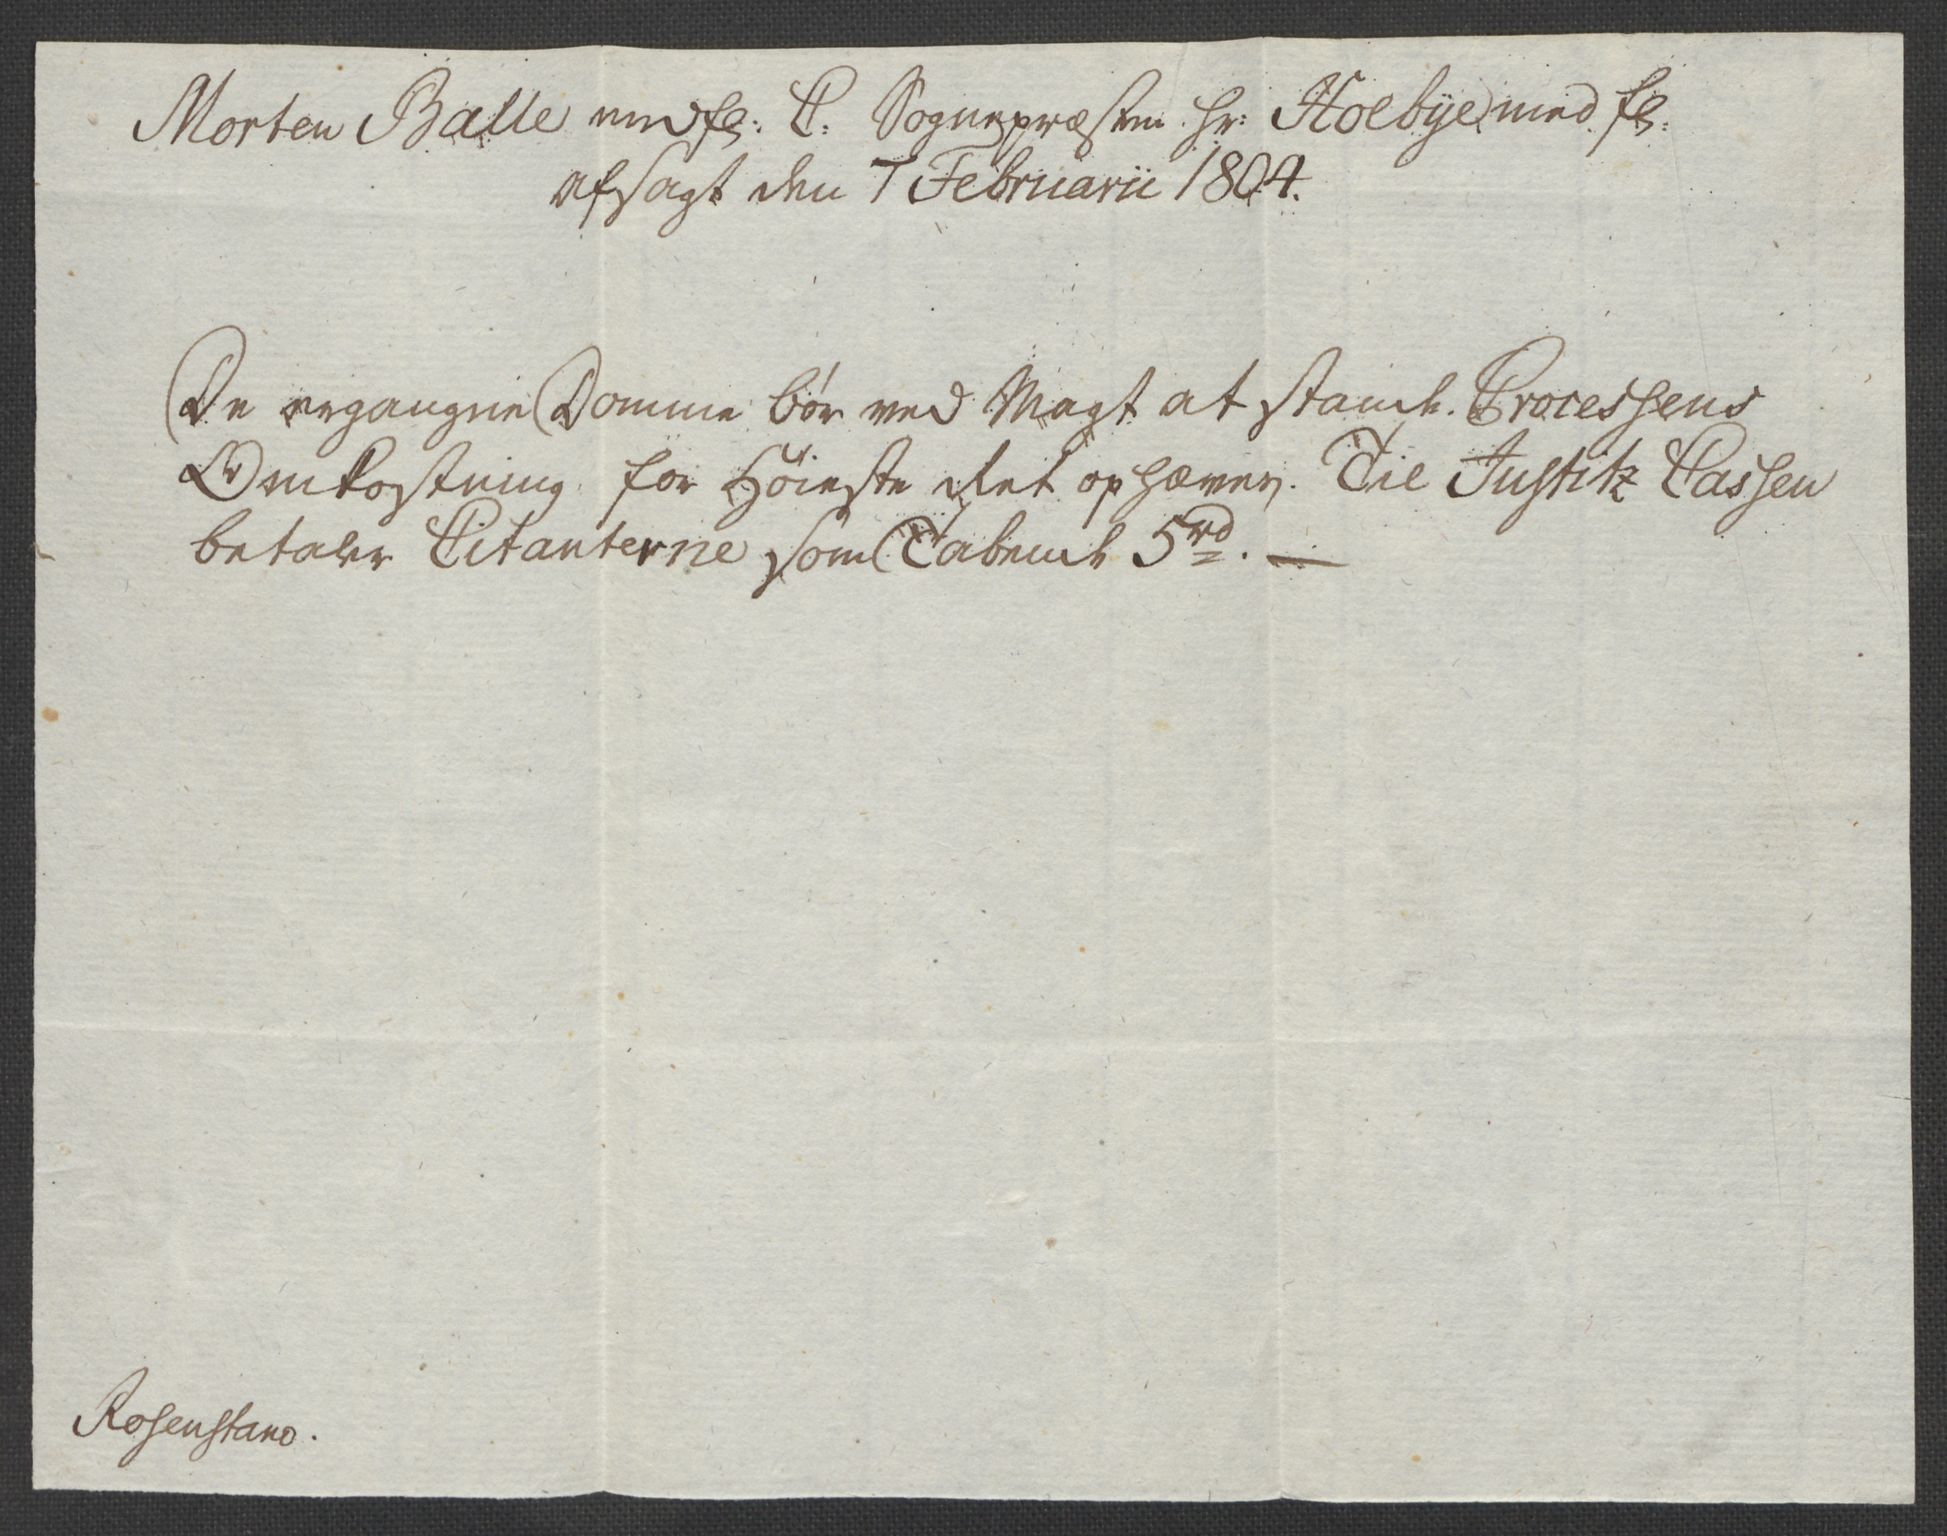 Morten Balle med fl: C. Sognepræsten Hr: Holbÿe med fl.
afsagt den 7 Februarii 1804.
De ergangne Domme bör ved Magt at stande. Processens
Omkostning for Höieste Ret ophæves. Til Justitz Cassen
betaler Citanterne som Tabende 5 rd. —
Rosenstand.